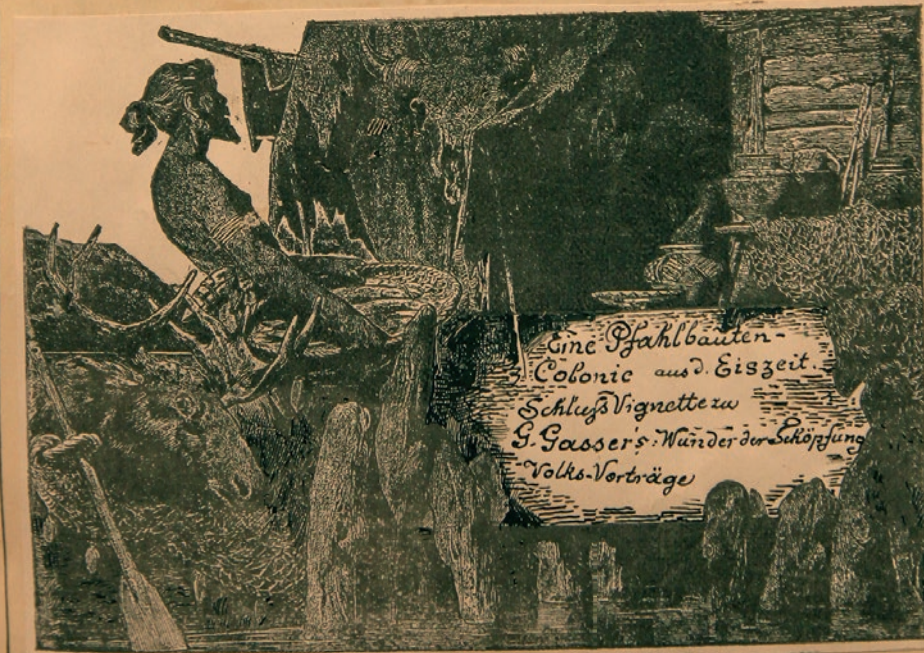 Eine Pfahlbauten-
Colonie aus d. Eiszeit.
Schluſs Vignette zu
G. Gasser's: Wunder der Schöpfung
Volks-Vorträge